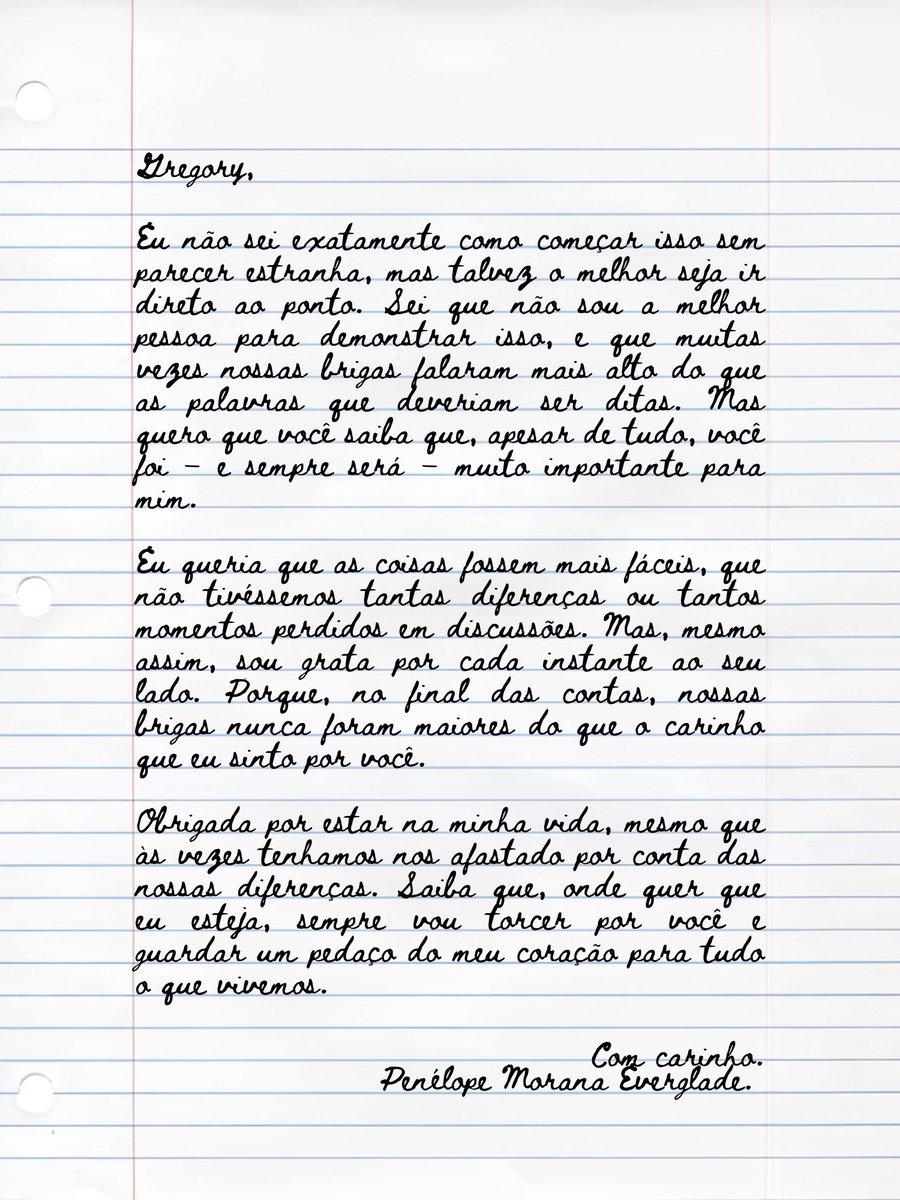 Gregory,
Eu não sei exatamente como começar isso sem
parecer estranha, mas talvez o melhor seja ir
direto ao ponto. Sei que não sou a melhor
pessoa para demonstrar isso, e que muitas
vezes nossas brigas falaram mais alto do que
as palavras que deveriam ser ditas. Mas
quero que você saiba que, apesar de tudo, você
foi – e sempre será – muito importante para
mim.
Eu queria que as coisas fossem mais fáceis, que
não tivéssemos tantas diferenças ou tantos
momentos perdidos em discussões. Mas, mesmo
assim, sou grata por cada instante ao seu
lado. Porque, no final das contas, nossas
brigas nunca foram maiores do que o carinho
que eu sinto por você.
Obrigada por estar na minha vida, mesmo que
às vezes tenhamos nos afastado por conta das
nossas diferenças. Saiba que, onde quer que
eu esteja, sempre vou torcer por você e
guardar um pedaço do meu coração para tudo
o que vivemos.
Com carinho.
Penélope Morana Everglade.